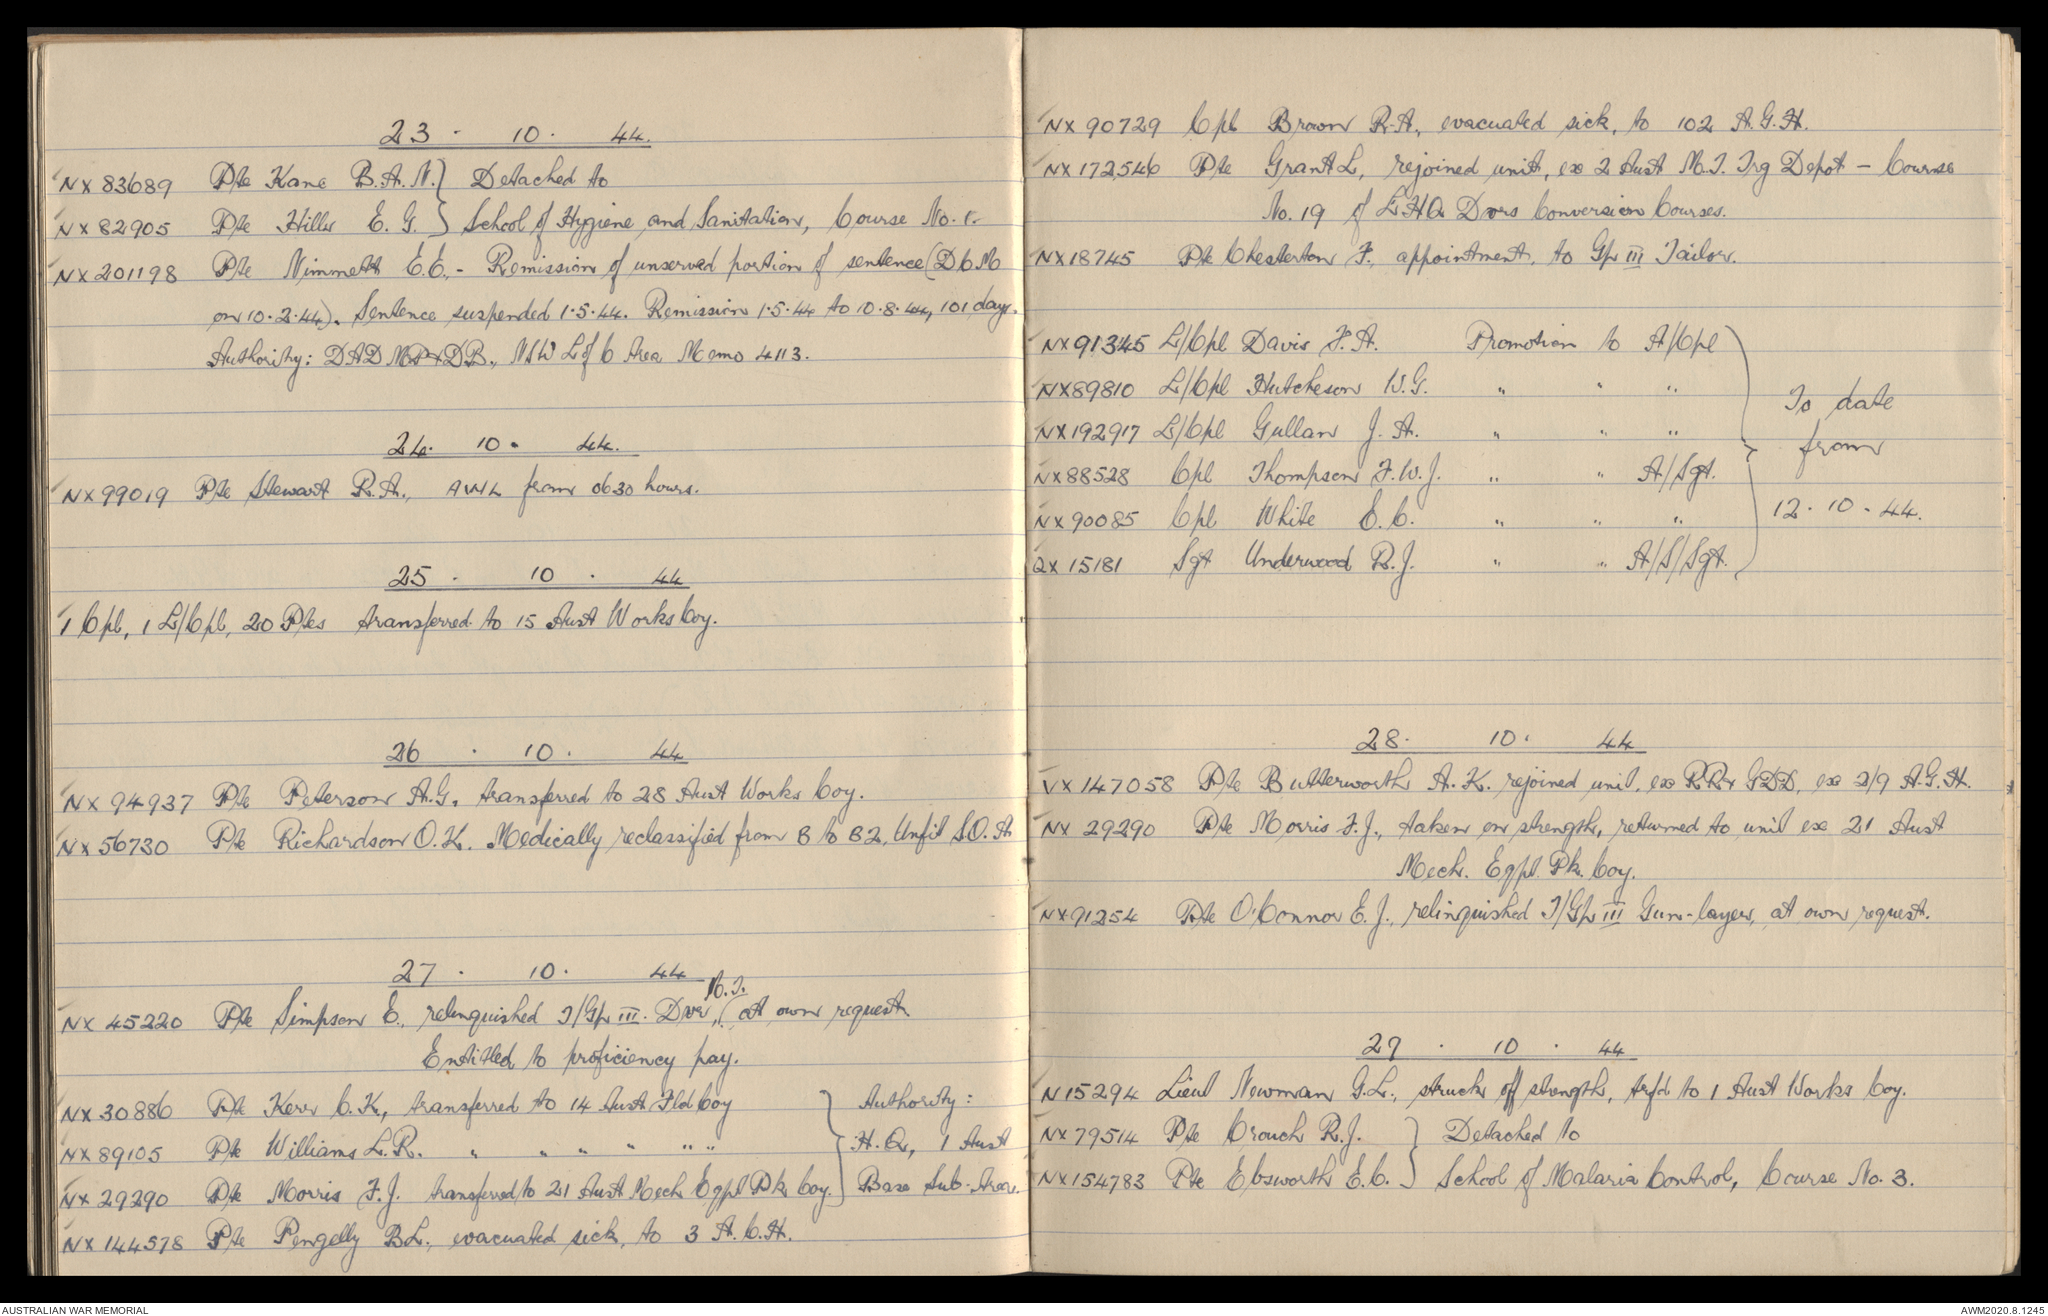 23 · 10 · 44.
NX 83689 Pte Kane B.A.N. } Detached to
NX 82905 Pte Hills E. G. } School of Hygiene and Sanitation, Course No. 1.
NX 201198 Pte Nimmett E.E. - Remission of unserved portion of sentence (DCM
on 10·2·44). Sentence suspended 1·5·44. Remission 1·5·44 to 10·8·44, 101 days.
Authority: DADMP&DB., NSW L of C Area Memo 4113.
24. 10 · 44.
NX 99019 Pte Stewart R.A., AWL from 0630 hours.
25 · 10 · 44
1 Cpl, 1 L/Cpl, 20 Ptes transferred to 15 Aust Works Coy.
26 · 10 · 44
NX 94937 Pte Peterson A.G. transferred to 28 Aust Works Coy.
NX 56730 Pte Richardson O.K. Medically reclassified from B to B2, Unfit S.O.A
27 · 10 · 44
M.T.
NX 45220 Pte Simpson E., relinquished T/Gp III. Dvr, ( at own request.
Entitled to proficiency pay.
NX 30886 Pte Kerr C.K., transferred to 14 Aust Fld Coy } Authority:
NX 89105 Pte Williams L.R. " " " " " " } H.Q., 1 Aust
NX 29290 Pte Morris F.J. transferred to 21 Aust Mech Eqpt Pk Coy. } Base Sub-Area.
NX 144578 Pte Pengelly B.L., evacuated sick, to 3 A.C.H.
NX 90729 Cpl Brown R.A., evacuated sick, to 102 A.G.H.
NX 172546 Pte Grant L, rejoined unit, ex 2 Aust M.T. Trg Depot - Course
No. 19 of LHQ Dvrs Conversion Courses.
NX 18745 Pte Chesterton F., appointment, to Gp III Tailor.
NX 91345 L/Cpl Davis F.A. Promotion to A/Cpl
NX 89810 L/Cpl Hutcheson W.G. " " "
To date
NX 192917 L/Cpl Gullan J. A. " " "
from
NX 88528 Cpl Thompson F.W.J. " " A/Sgt.
NX 90085 Cpl White E.C. " " "
12 · 10 · 44.
QX 15181 Sgt Underwood R.J. " " A/S/Sgt.
28 · 10 · 44
VX 147058 Pte Butterworth A. K. rejoined unit, ex RR& GDD, ex 2/9 A.G.H.
NX 29290 Pte Morris F.J., taken on strength, returned to unit ex 21 Aust
Mech. Eqpt. Pk. Coy.
NX 91254 Pte O'Connor E.J., relinquished T/Gp III Gun-layer, at own request.
29 · 10 · 44
N 15294 Lieut Newman G.L., struck off strength, trfd to 1 Aust Works Coy.
NX 79514 Pte Crouch R.J. } Detached to
NX 154783 Pte Ebsworth E.C. } School of Malaria Control, Course No. 3.
AUSTRALIAN WAR MEMORIAL
AWM2020.8.1245